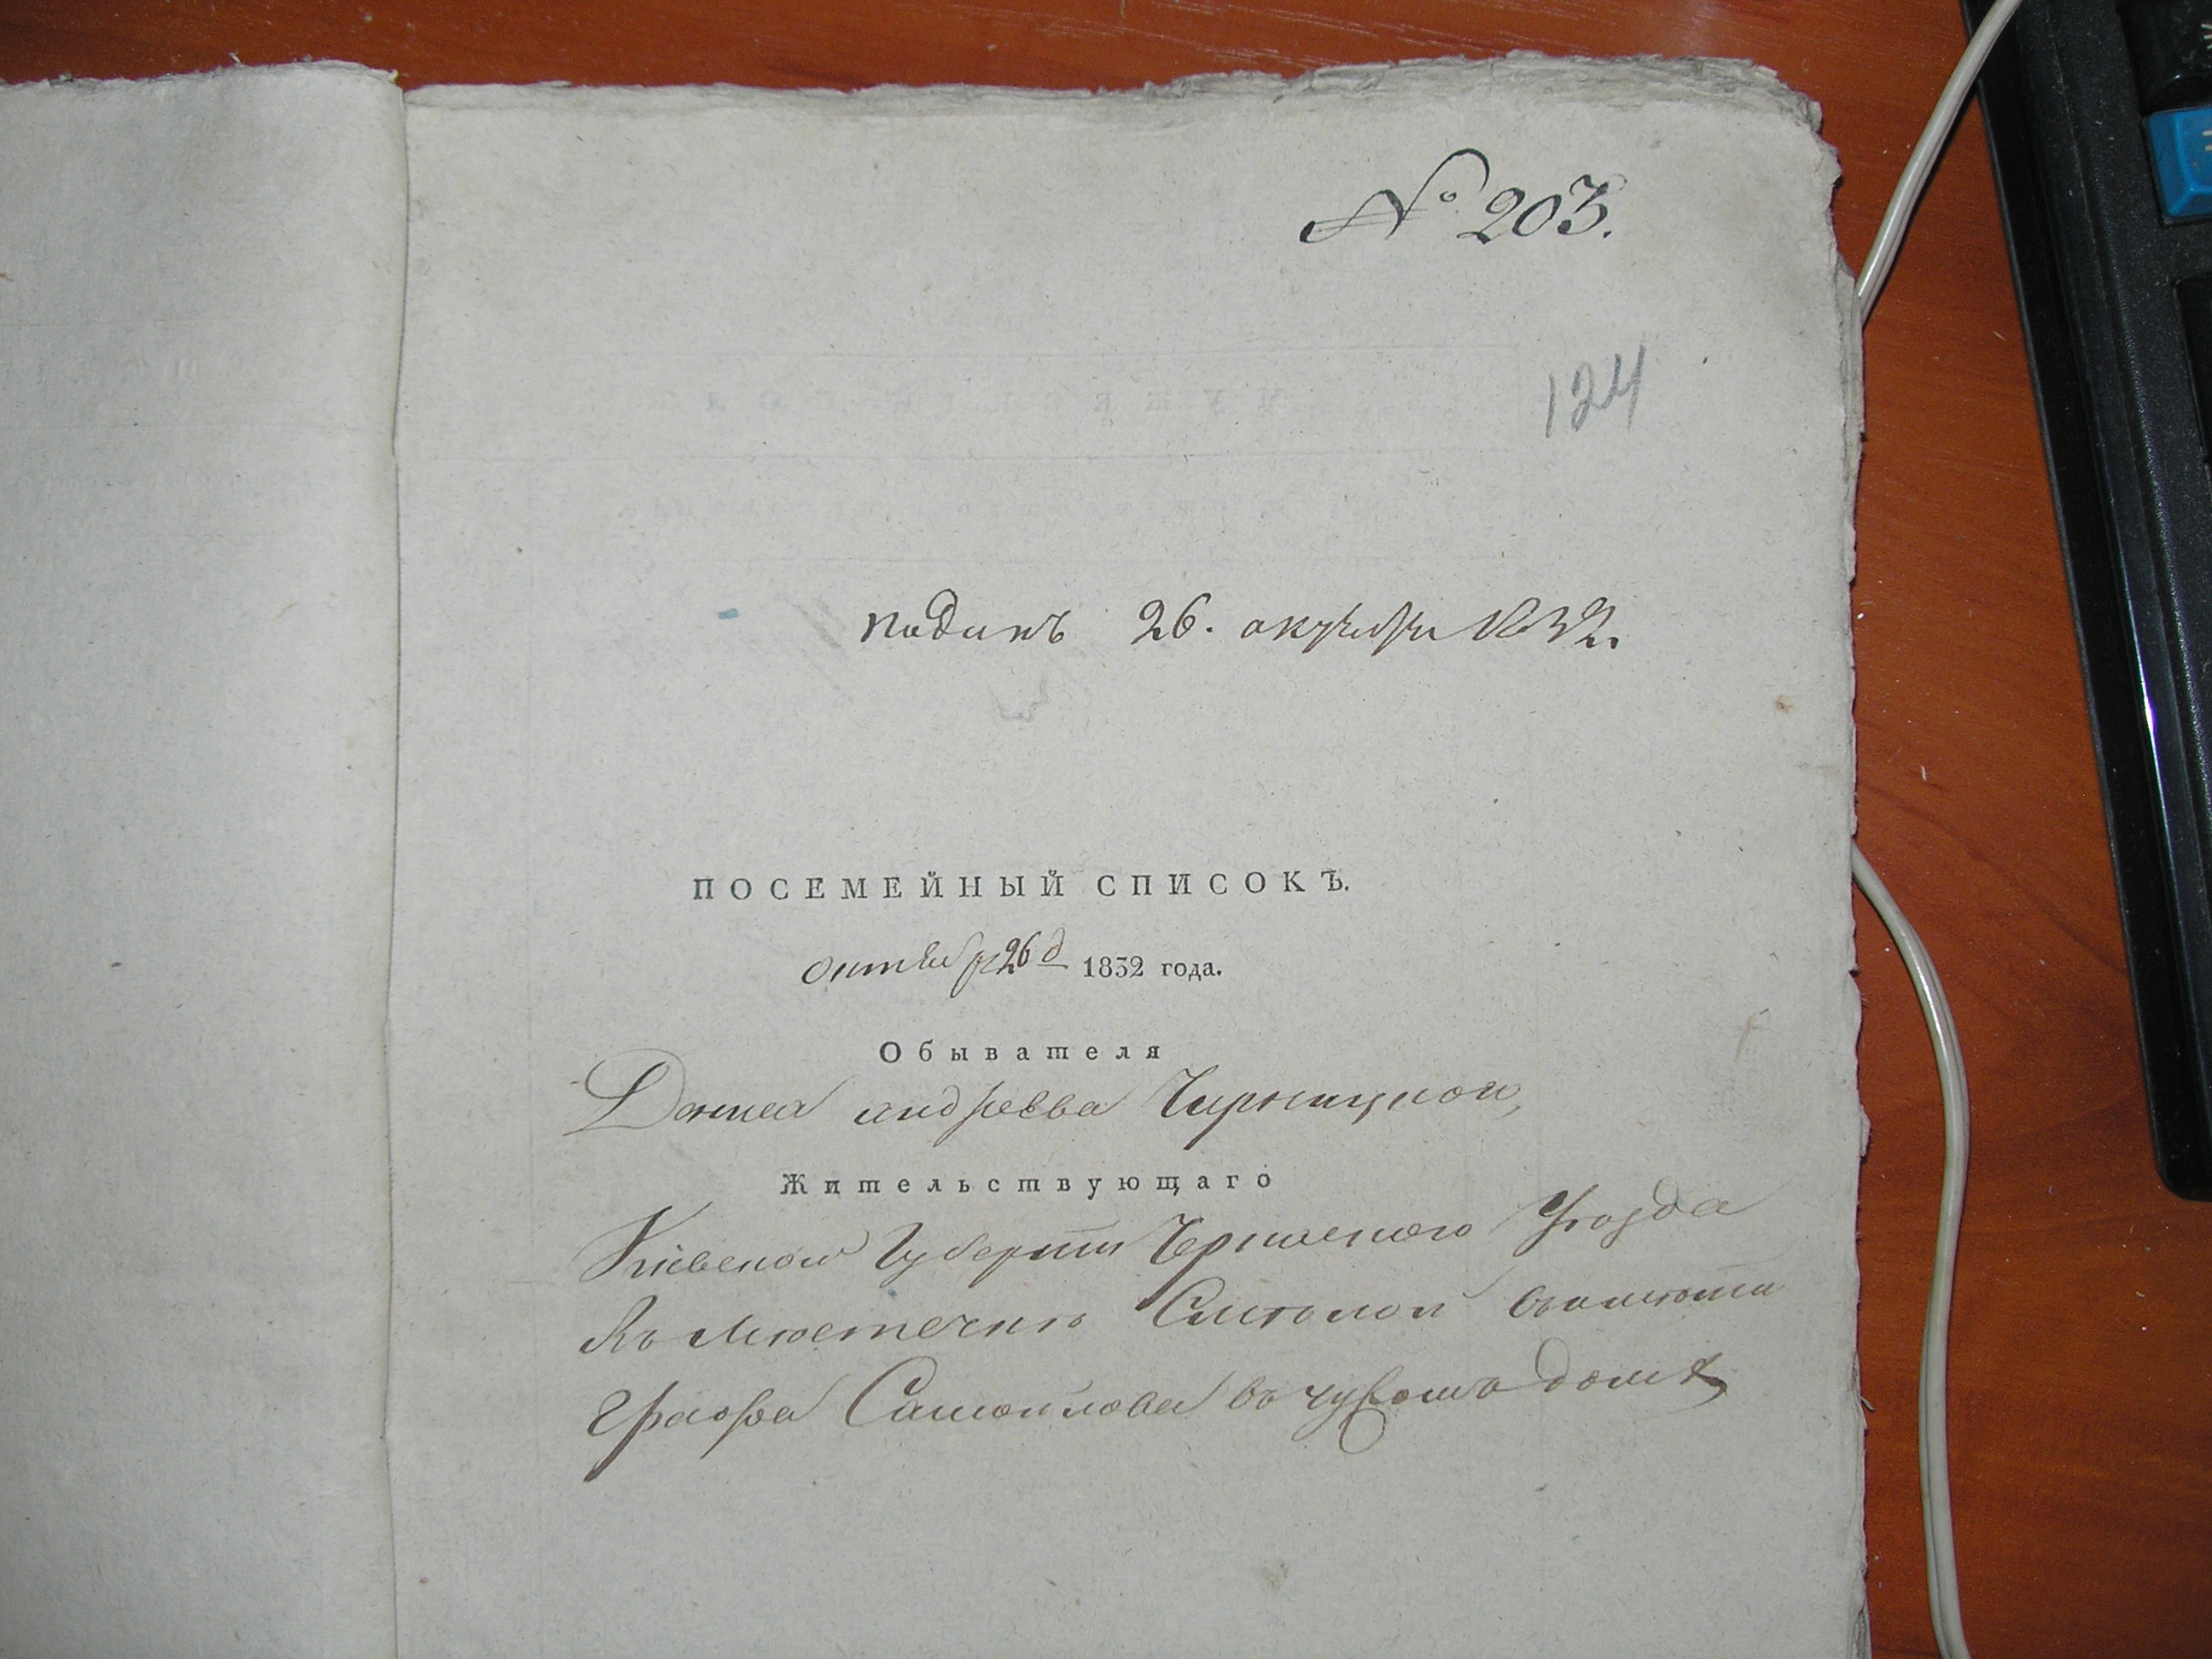 № 203.
124
подинъ 26. октября 1832.
ПОСЕМЕЙНЫЙ СПИСОКЪ.
октября 26 д 1832 года.
Обывателя
андреева
Жительствующаго
Кіевской Губерніи Черкаского Уѣзда
въ Мѣстечкѣ Смѣлой
Графа Самойлова въ чужомъ домѣ